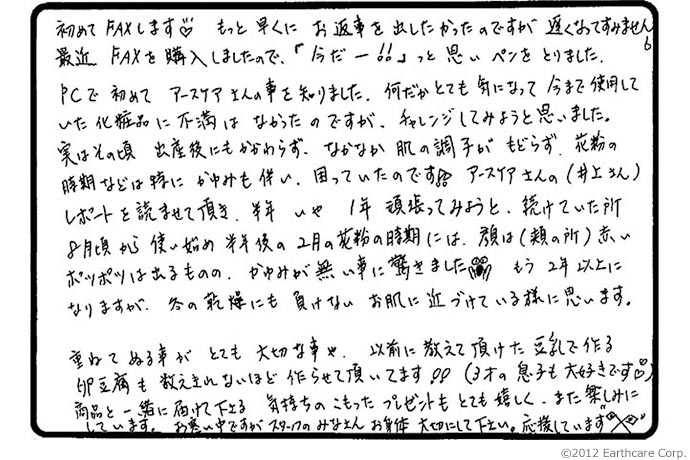 初めてFAXします♡ もっと早くに お返事を出したかったのですが 遅くなってすみません。
最近 FAXを購入しましたので、「今だー!!」っと思いペンをとりました。
PCで初めて アースケアさんの事を知りました。何だかとても気になって今まで使用して
いた化粧品に不満はなかったのですが、チャレンジしてみようと思いました。
実はその頃 出産後にもかかわらず、なかなか肌の調子がもどらず、花粉の
時期などは特にかゆみも伴い、困っていたのです!! アースケアさんの(井上さん)
レポートを読ませて頂き、半年 いや 1年 頑張ってみようと、続けていた所
8月頃から使い始め半年後の2月の花粉の時期には、顔は(頬の所)赤い
ポツポツは出るものの、かゆみが無い事に驚きました もう2年以上に
なりますが、冬の乾燥にも負けない お肌に近づけている様に思います。
重ねてぬる事がとても大切な事や、以前に教えて頂けた豆乳で作る
卵豆腐も数えきれないほど作らせて頂いてます!! (3才の息子も大好きです♡)
商品と一緒に届けて下さる 気持ちのこもったプレゼントもとても嬉しく、また楽しみに
しています。お寒い中ですがスタッフのみなさん お身体 大切にして下さい。応援しています
©2012 Earthcare Corp.